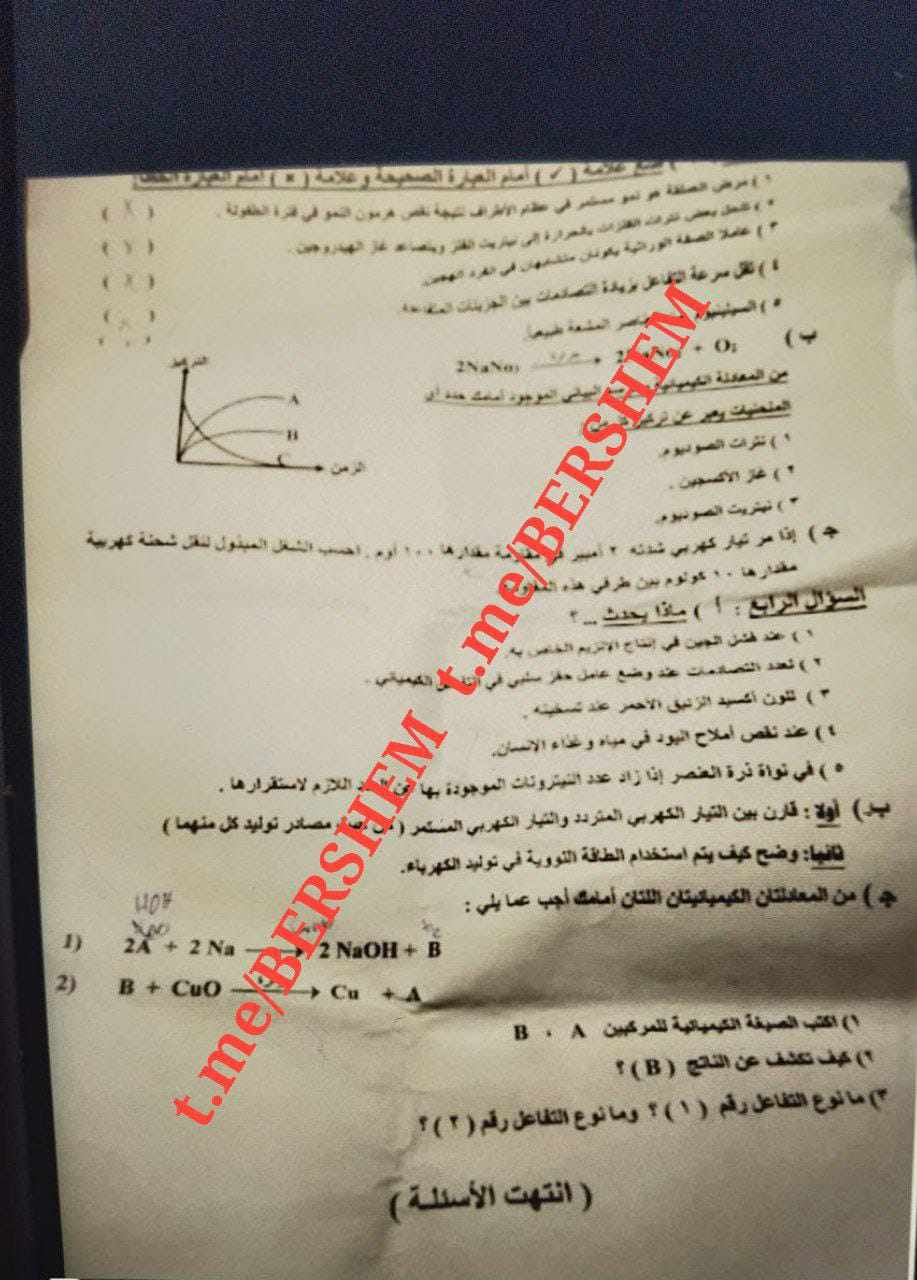 ضع علامة ( ✓ ) أمام العبارة الصحيحة وعلامة ( × ) أمام العبارة الخطأ
١ ) مرض الصلفة هو نمو مستمر في عظام الأطراف نتيجة نقص هرمون النمو في فترة الطفولة . ( X )
تنحل بعض نترات الفلزات بالحرارة إلى نيتريت الفلز ويتصاعد غاز الهيدروجين . ( )
٣ ) عاملا الصفة الوراثية يكونان متشابهان في الفرد الهجين. ( X )
٤ ) تقل سرعة التفاعل بزيادة التصادمات بين الجزيئات المتفاعلة. ( )
٥ ) السيلينيوم المشعة طبيعياً. ( )
ب ) 2NaNo₃ حرارة + O₂
من المعادلة الكيميائية البياني الموجود أمامك حدد أي
المنحنيات يعبر عن تركيز كل من :
١ ) نترات الصوديوم.
٢ ) غاز الأكسجين .
٣ ) نيتريت الصوديوم.
التركيز
A
B
C
الزمن
جـ ) إذا مر تيار كهربي شدته ٢ أمبير في مقاومة مقدارها ١٠٠ أوم , احسب الشغل المبذول لنقل شحنة كهربية
مقدارها ١٠ كولوم بين طرفي هذه المقاومة
السؤال الرابع : أ ) ماذا يحدث ... ؟
١ ) عند فشل الجين في إنتاج الإنزيم الخاص به.
٢ ) لعدد التصادمات عند وضع عامل حفز سلبي في التفاعل الكيميائي .
٣ ) للون أكسيد الزئبق الأحمر عند تسخينه .
٤ ) عند نقص أملاح اليود في مياه وغذاء الانسان.
٥ ) في نواة ذرة العنصر إذا زاد عدد النيترونات الموجودة بها عن العدد اللازم لاستقرارها .
بـ ) أولا : قارن بين التيار الكهربي المتردد والتيار الكهربي المستمر ( من حيث مصادر توليد كل منهما )
ثانيا: وضح كيف يتم استخدام الطاقة النووية في توليد الكهرباء.
جـ ) من المعادلتان الكيميائيتان اللتان أمامك أجب عما يلي :
1) 2A + 2 Na → 2 NaOH + B
2) B + CuO → Cu + A
١) اكتب الصيغة الكيميائية للمركبين A ، B
٢) كيف تكشف عن الناتج ( B ) ؟
٣) ما نوع التفاعل رقم ( ١ ) ؟ وما نوع التفاعل رقم ( ٢ ) ؟
( انتهت الأسئلة )
t.me/BERSHEM t.me/BERSHEM